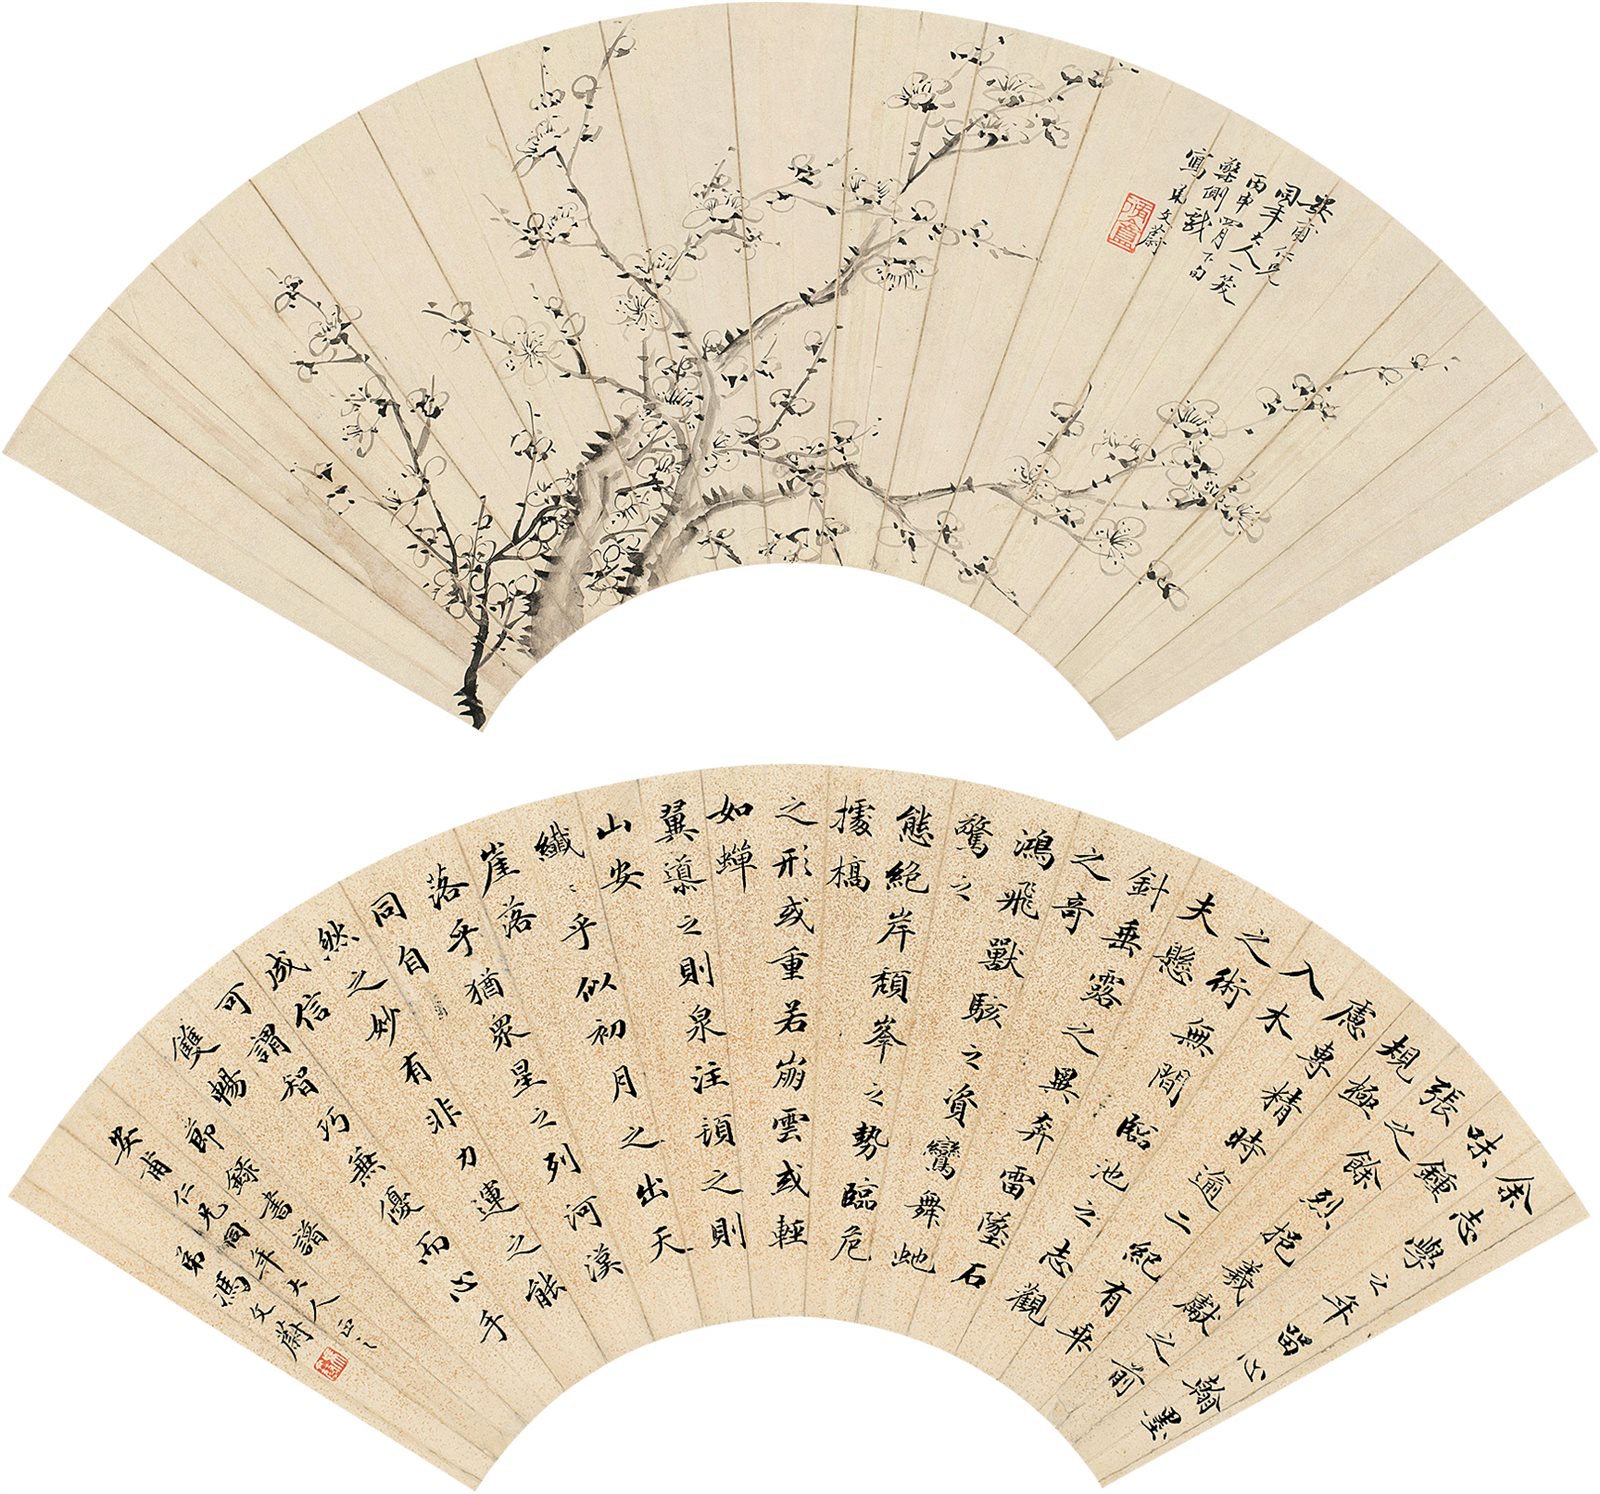 安甫仁兄
同年大人一笑
丙申四月下旬
側戲
寫 弟文蔚
脩盦
余志學之年留心翰墨
味鍾
張之餘烈挹羲獻之前
規極
慮專精時逾二紀有乖
入木
之術無間臨池之志觀
夫懸
針垂露之異奔雷墜石
之奇
鴻飛獸駭之資鸞舞虵
驚之
態絕岸頹峯之勢臨危
據槁
之形或重若崩雲或輕
如蟬
翼導之則泉注頓之則
山安
纖々乎似初月之出天
崖落
落乎猶眾星之列河漢
同自
然之妙有非力運之能
成信
可謂智巧兼優而心手
雙暢 節錄書譜
安甫仁兄同年大人正之
弟馮文蔚